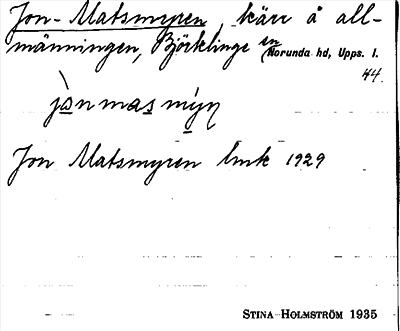 Jon-Matsmyren, kärr å all-
männingen, Björklinge sn
Norunda hd, Upps. l.
44.
jònmasmy̆n
Jon Matsmyren lmk 1929
STINA HOLMSTRÖM 1935